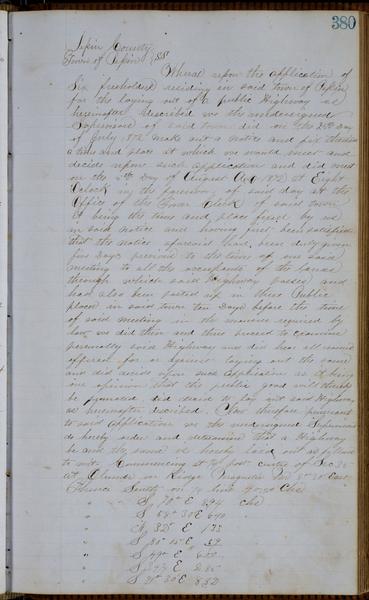 380
Pepin County
Town of Pepin } SS
Whereas upon the application of
Six freeholders residing in said town of Pepin
for the laying out of a public Highway as
hereinafter described we the undersigned
Supervisors of said town did on the day
of July 1872 make out a notice and fix therein
a time and place at which we would meet and
decide upon such application and did meet
on the 5th Day of August AD 1872 at Eight
Oclock in the forenoon of said day at the
Office of the Town Clerk of said town
it being the time and place fixed by us
in said notice and having first been satisfied
that the notice aforesaid had been duly given
five Days previous to the time of our said
meeting to all the occupants of the lands
through which said Highway passes and
had also been posted up in three Public
places in said town ten Days before the time
of said meeting in the manner required by
law we did then and there proceed to examine
personally said Highway and did hear all reasons
offered for or against laying out the same
and did decide upon such application as it being
our opinion that the public good will thereby
be promoted did decide to lay out said Highway
as hereinafter described. Now therefore pursuant
to said application we the undersigned Supervisors
do hereby order and determine that a Highway
be and the same is hereby laid out as follows
to wit. Commencing at post of Sec
at
Thence South on line 40.50 Chs
" S 70° E 8.94 Chs
" S 68° 30 E
" N 82° E 1.73
" S 86° 15 E
" S E
" S E 2.85
" S 30 E 8.52